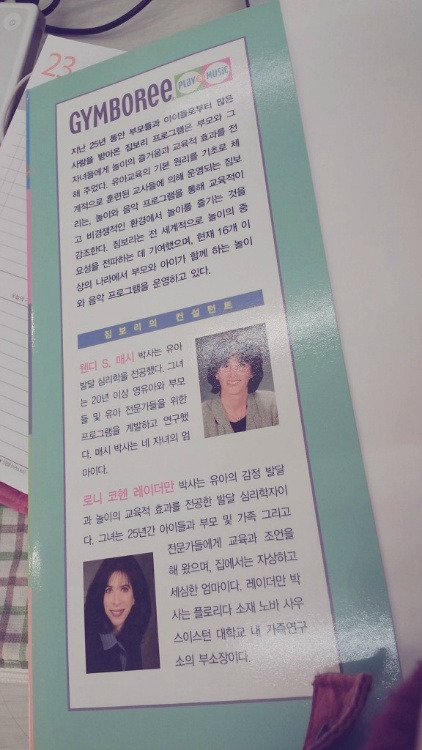 23
GYMBOREE PLAY & MUSIC
지난 25년 동안 부모들과 아이들로부터 많은
사랑을 받아온 짐보리 프로그램은 부모와 그
자녀들에게 놀이의 즐거움과 교육적 효과를 전
해 주었다. 유아교육의 기본 원리를 기초로 체
계적으로 훈련된 교사들에 의해 운영되는 짐보
리는, 놀이와 음악 프로그램을 통해 교육적이
고 비경쟁적인 환경에서 놀이를 즐기는 것을
강조한다. 짐보리는 전 세계적으로 놀이의 중
요성을 전파하는 데 기여했으며, 현재 16개 이
상의 나라에서 부모와 아이가 함께 하는 놀이
와 음악 프로그램을 운영하고 있다.
짐보리의 컨설턴트
웬디 S. 매시 박사는 유아
발달 심리학을 전공했다. 그녀
는 20년 이상 영유아와 부모
들 및 유아 전문가들을 위한
프로그램을 개발하고 연구했
다. 매시 박사는 네 자녀의 엄
마이다.
로니 코헨 레이더만 박사는 유아의 감정 발달
과 놀이의 교육적 효과를 전공한 발달 심리학자이
다. 그녀는 25년간 아이들과 부모 및 가족 그리고
전문가들에게 교육과 조언을
해 왔으며, 집에서는 자상하고
세심한 엄마이다. 레이더만 박
사는 플로리다 소재 노바 사우
스이스턴 대학교 내 가족연구
소의 부소장이다.